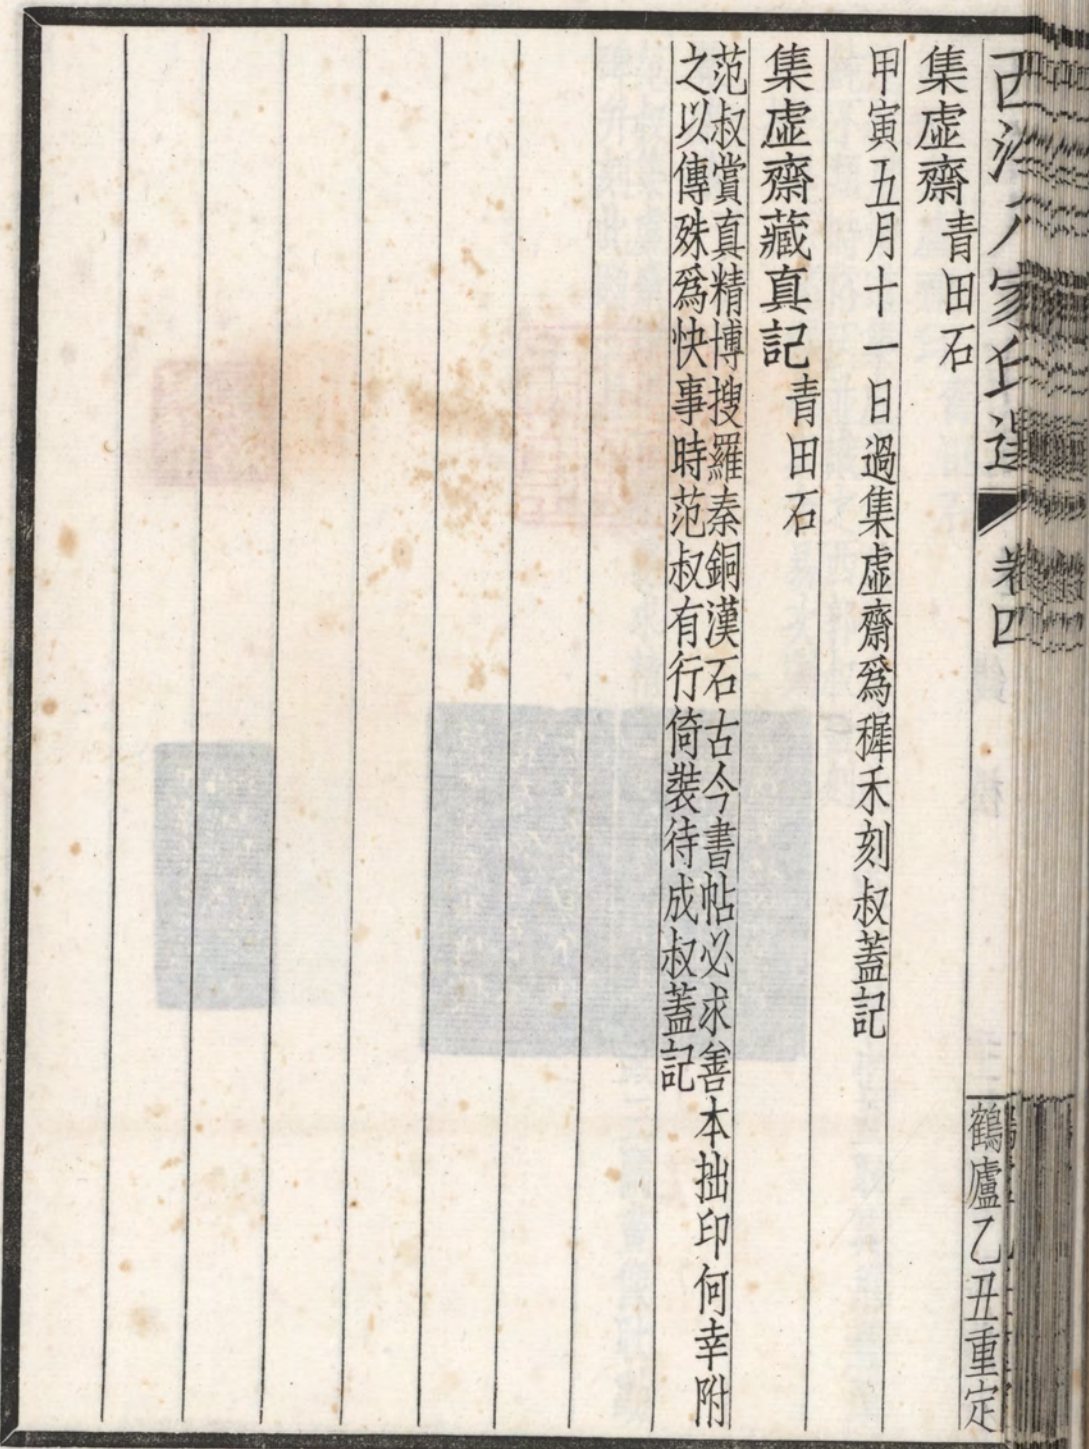 西泠八家印選
卷四
鶴廬乙丑重定
集虛齋 青田石
甲寅五月十一日過集虛齋爲穉禾刻叔蓋記
集虛齋藏真記 青田石
范叔賞真精博搜羅秦銅漢石古今書帖必求善本拙印何幸附
之以傳殊爲快事時范叔有行倚裝待成叔蓋記